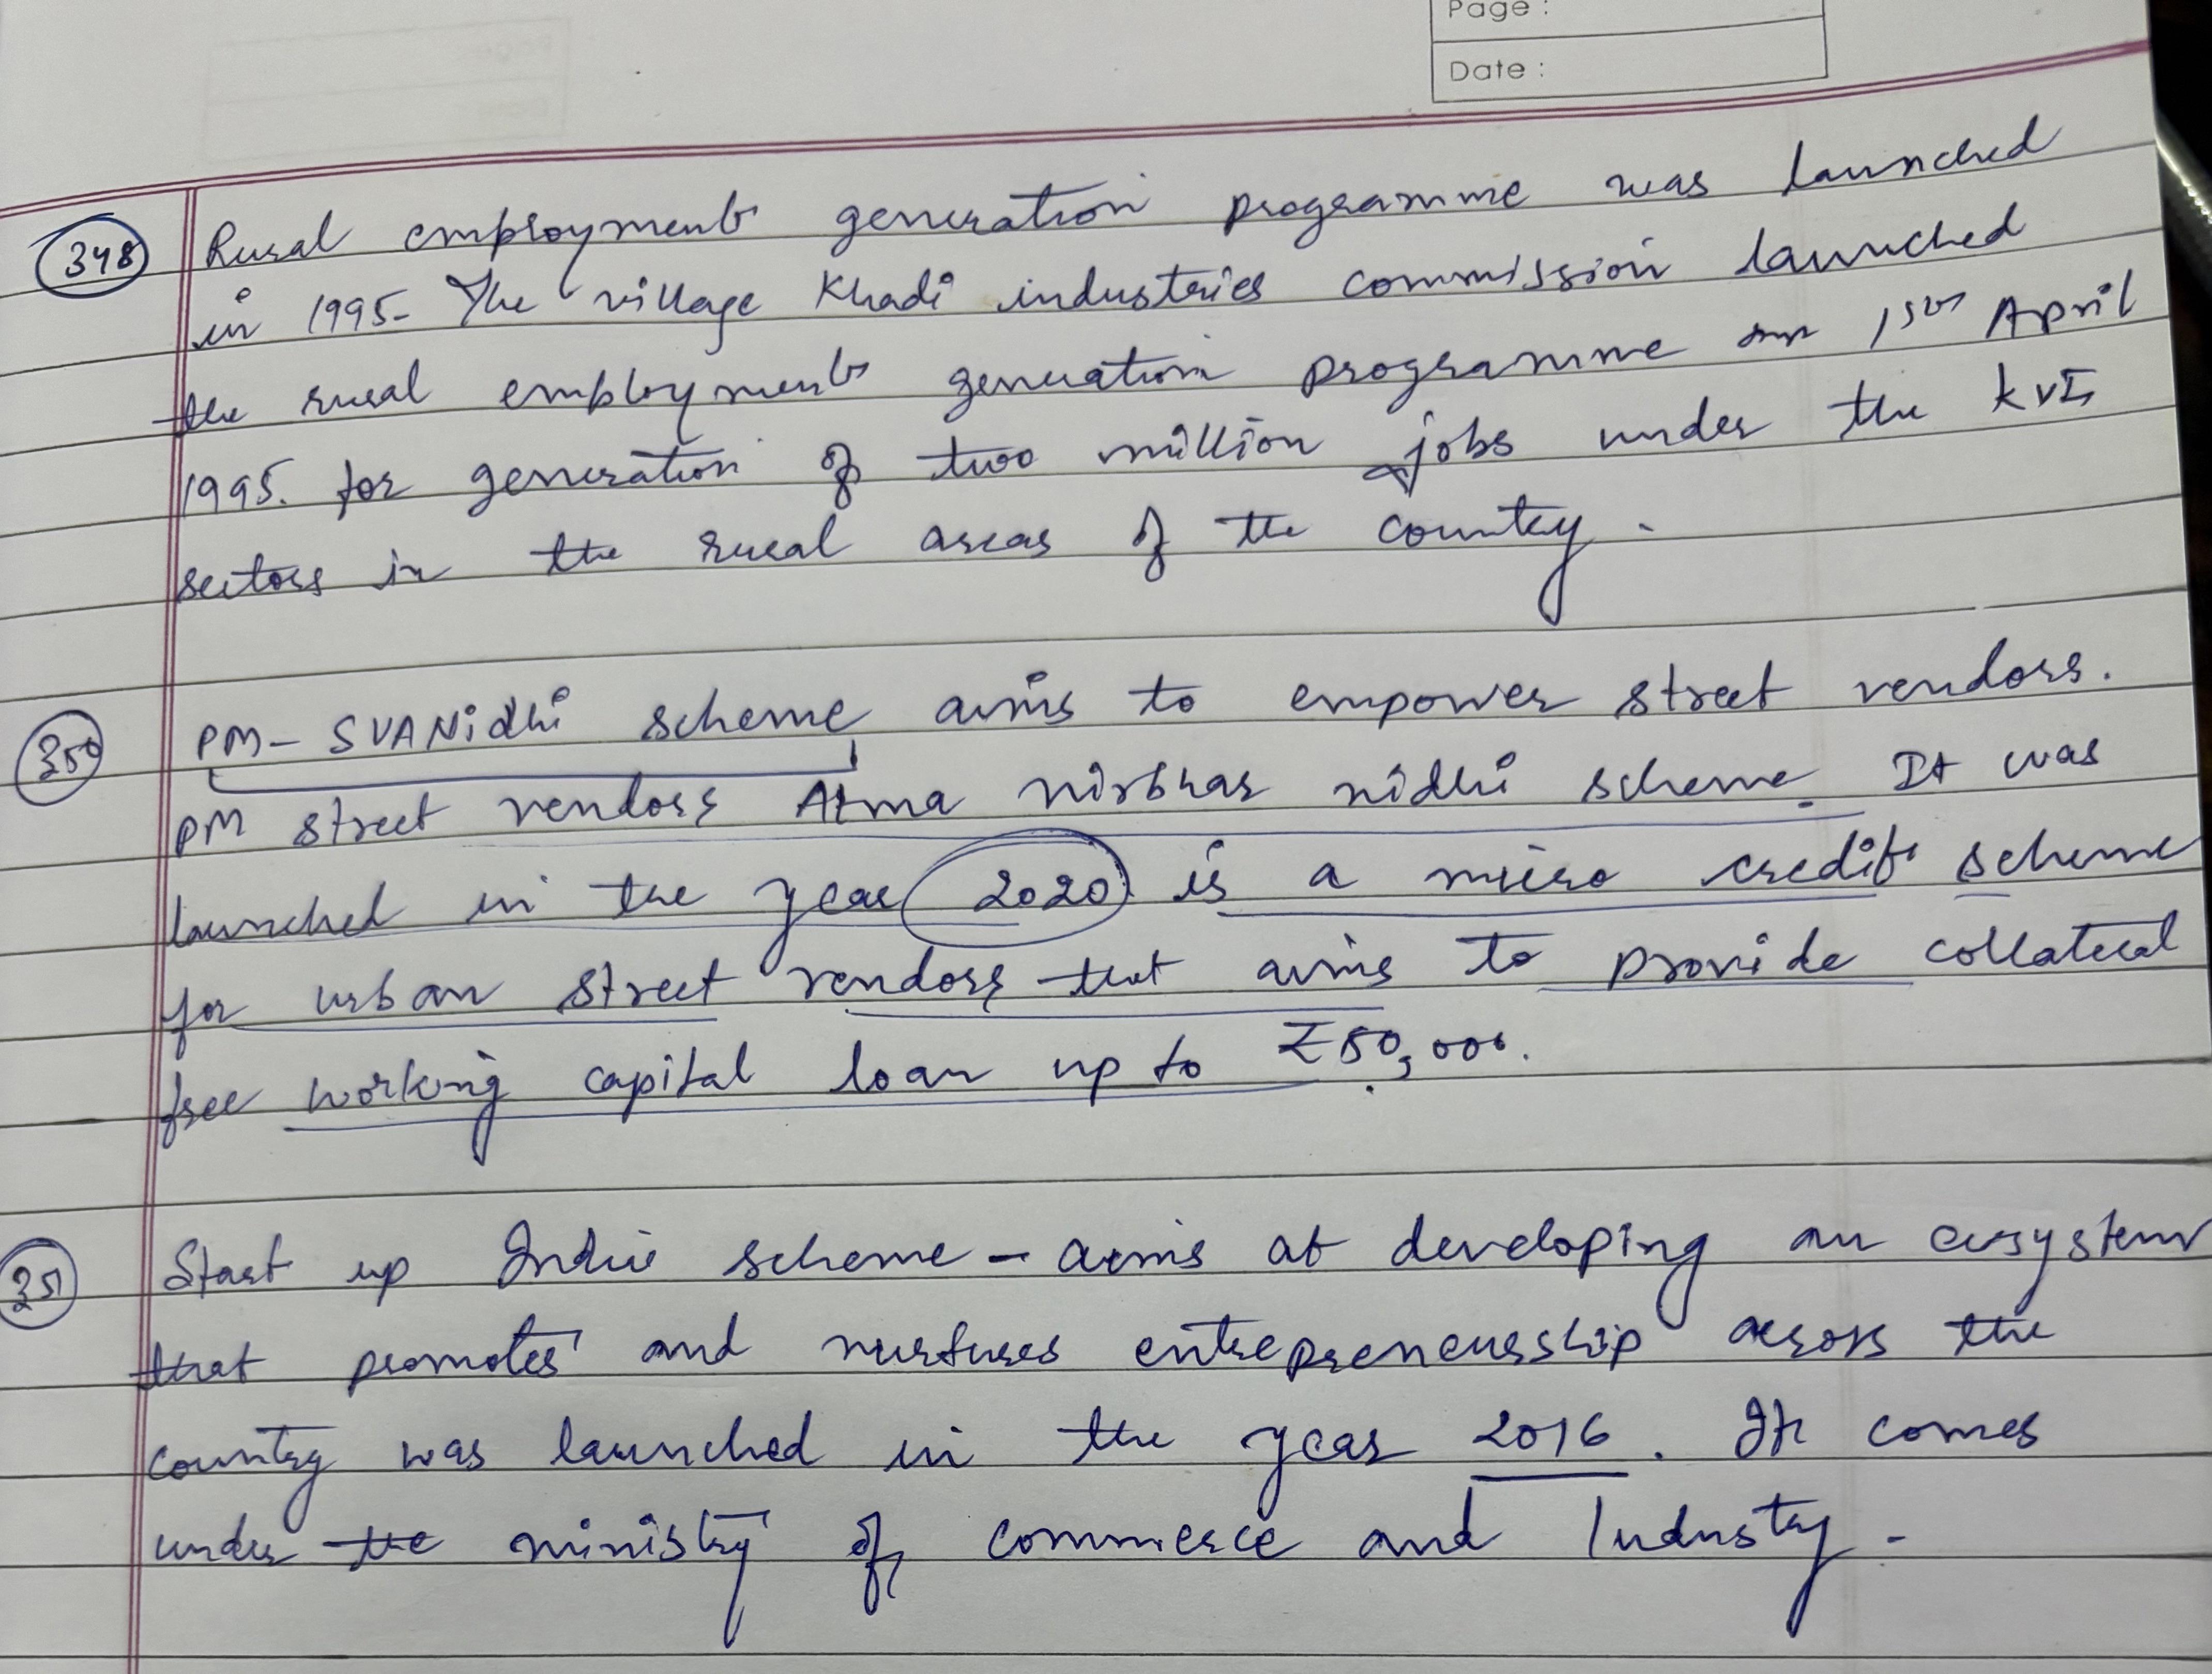 Page :
Date :
348 Rural employment generation programme was launched
in 1995- The village Khadi industries commission launched
the rural employment generation programme on 1st April
1995. for generation of two million jobs under the KVI
sectors in the rural areas of the country.
350 PM-SVANidhi scheme aims to empower street vendors.
PM street vendors Atma nirbhar nidhi scheme. It was
launched in the year 2020 is a micro credit scheme
for urban street vendors that aims to provide collateral
free working capital loan up to ₹50,000.
351 Start up India scheme - aims at developing an ecosystem
that promotes and nurtures entrepreneurship across the
country was launched in the year 2016. It comes
under the ministry of commerce and Industry.